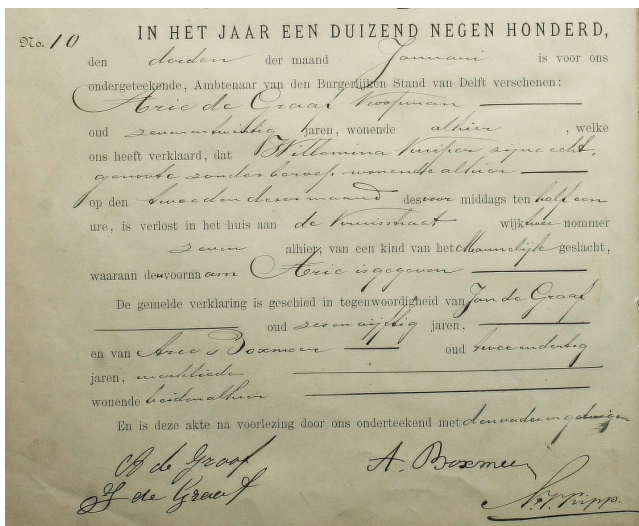 No. 10
IN HET JAAR EEN DUIZEND NEGEN HONDERD,
den derden der maand Januari is voor ons
ondergeteekende, Ambtenaar van den Burgerlijken Stand van Delft verschenen:
Arie de Graaf Koopman
oud zevenentwintig jaren, wonende alhier, welke
ons heeft verklaard, dat Willemina Kuiper zijne echt-
genoote zonder beroep wonende alhier
op den tweeden dezer maand des voor middags ten half een
ure, is verlost in het huis aan de Kruisstraat wijk twee nommer
zeven alhier, van een kind van het Mannelijk geslacht,
waaraan de voornaam Arie is gegeven
De gemelde verklaring is geschied in tegenwoordigheid van Jan de Graaf
oud zesenvijftig jaren,
en van Arie Boxmeer oud tweeendertig
jaren, werklieden
wonende beiden alhier
En is deze akte na voorlezing door ons onderteekend met den vader en getuigen
A de Graaf
A. Boxmeer
J de Graaf